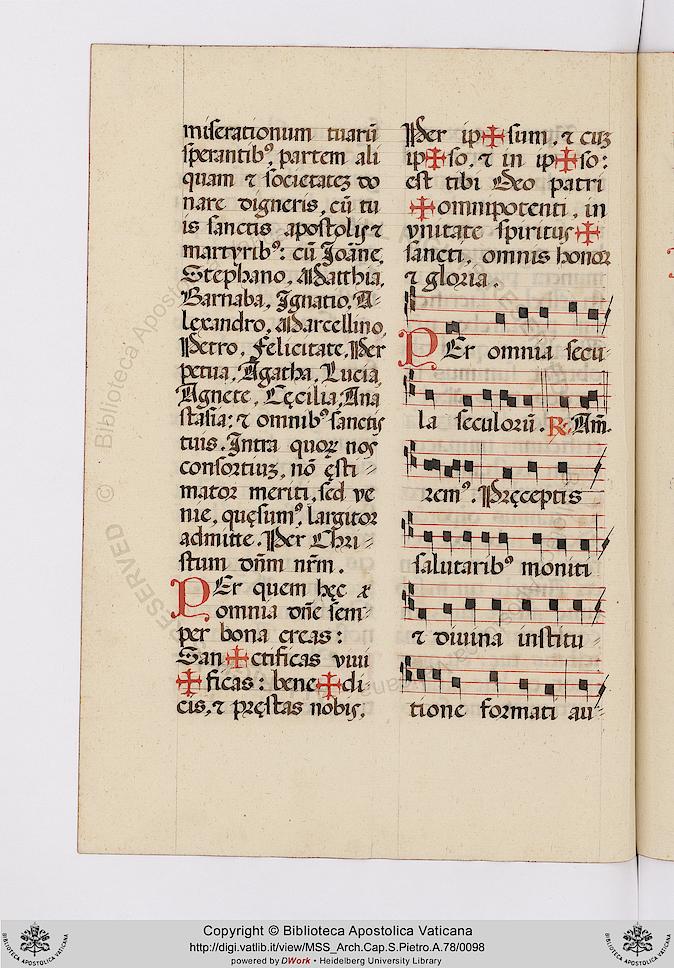 miserationum tuarū
sperantibꝰ, partem ali
quam ⁊ societateꝫ do
nare digneris, cū tu
is sanctis apostolis ⁊
martyribꝰ: cū Joāne,
Stephano, Matthia,
Barnaba, Ignatio, A-
lexandro, Marcellino,
Petro, Felicitate, Per
petua, Agatha, Lucia,
Agnete, Cęcilia, Ana
stasia: ⁊ omnibꝰ sanctis
tuis. Intra quoꝝ nos
consortiuꝫ, nō ęsti-
mator meriti, sed ve
nię, quęsumꝰ, largitor
admitte. Per Chri-
stum dn̄m nr̄m.
PEr quem hęc ⁊
omnia dn̄e sem-
per bona creas:
San✠ctificas vivi
✠ficas: bene✠di-
cis, ⁊ pręstas nobis.
Per ip✠sum, ⁊ cuꝫ
ip✠so, ⁊ in ip✠so:
est tibi Deo patri
✠omnipotenti, in
vnitate spiritus✠
sancti, omnis honor
⁊ gloria.
PEr omnia secu-
la seculorū. ℞. Am̄.
remꝰ. Pręceptis
salutaribꝰ moniti
⁊ divina institu-
tione formati au-
Copyright © Biblioteca Apostolica Vaticana
http://digi.vatlib.it/view/MSS_Arch.Cap.S.Pietro.A.78/0098
powered by DWork • Heidelberg University Library
BIBLIOTECA APOSTOLICA VATICANA
BIBLIOTECA APOSTOLICA VATICANA